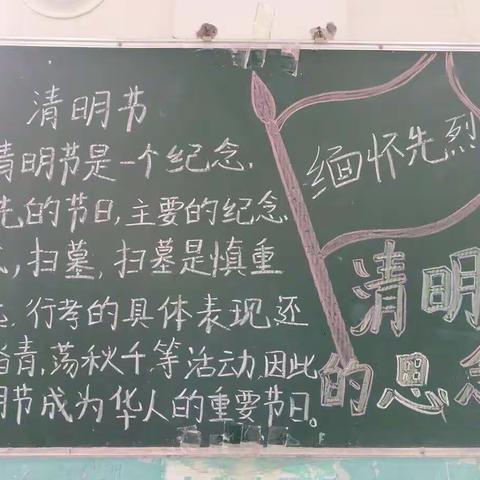 清明节
清明节是一个纪念,
先的节日,主要的纪念
扫墓,扫墓是慎重
行孝的具体表现,还
踏青,荡秋千,等活动,因此
明节成为华人的重要节日。
缅怀先烈
清明
的思念